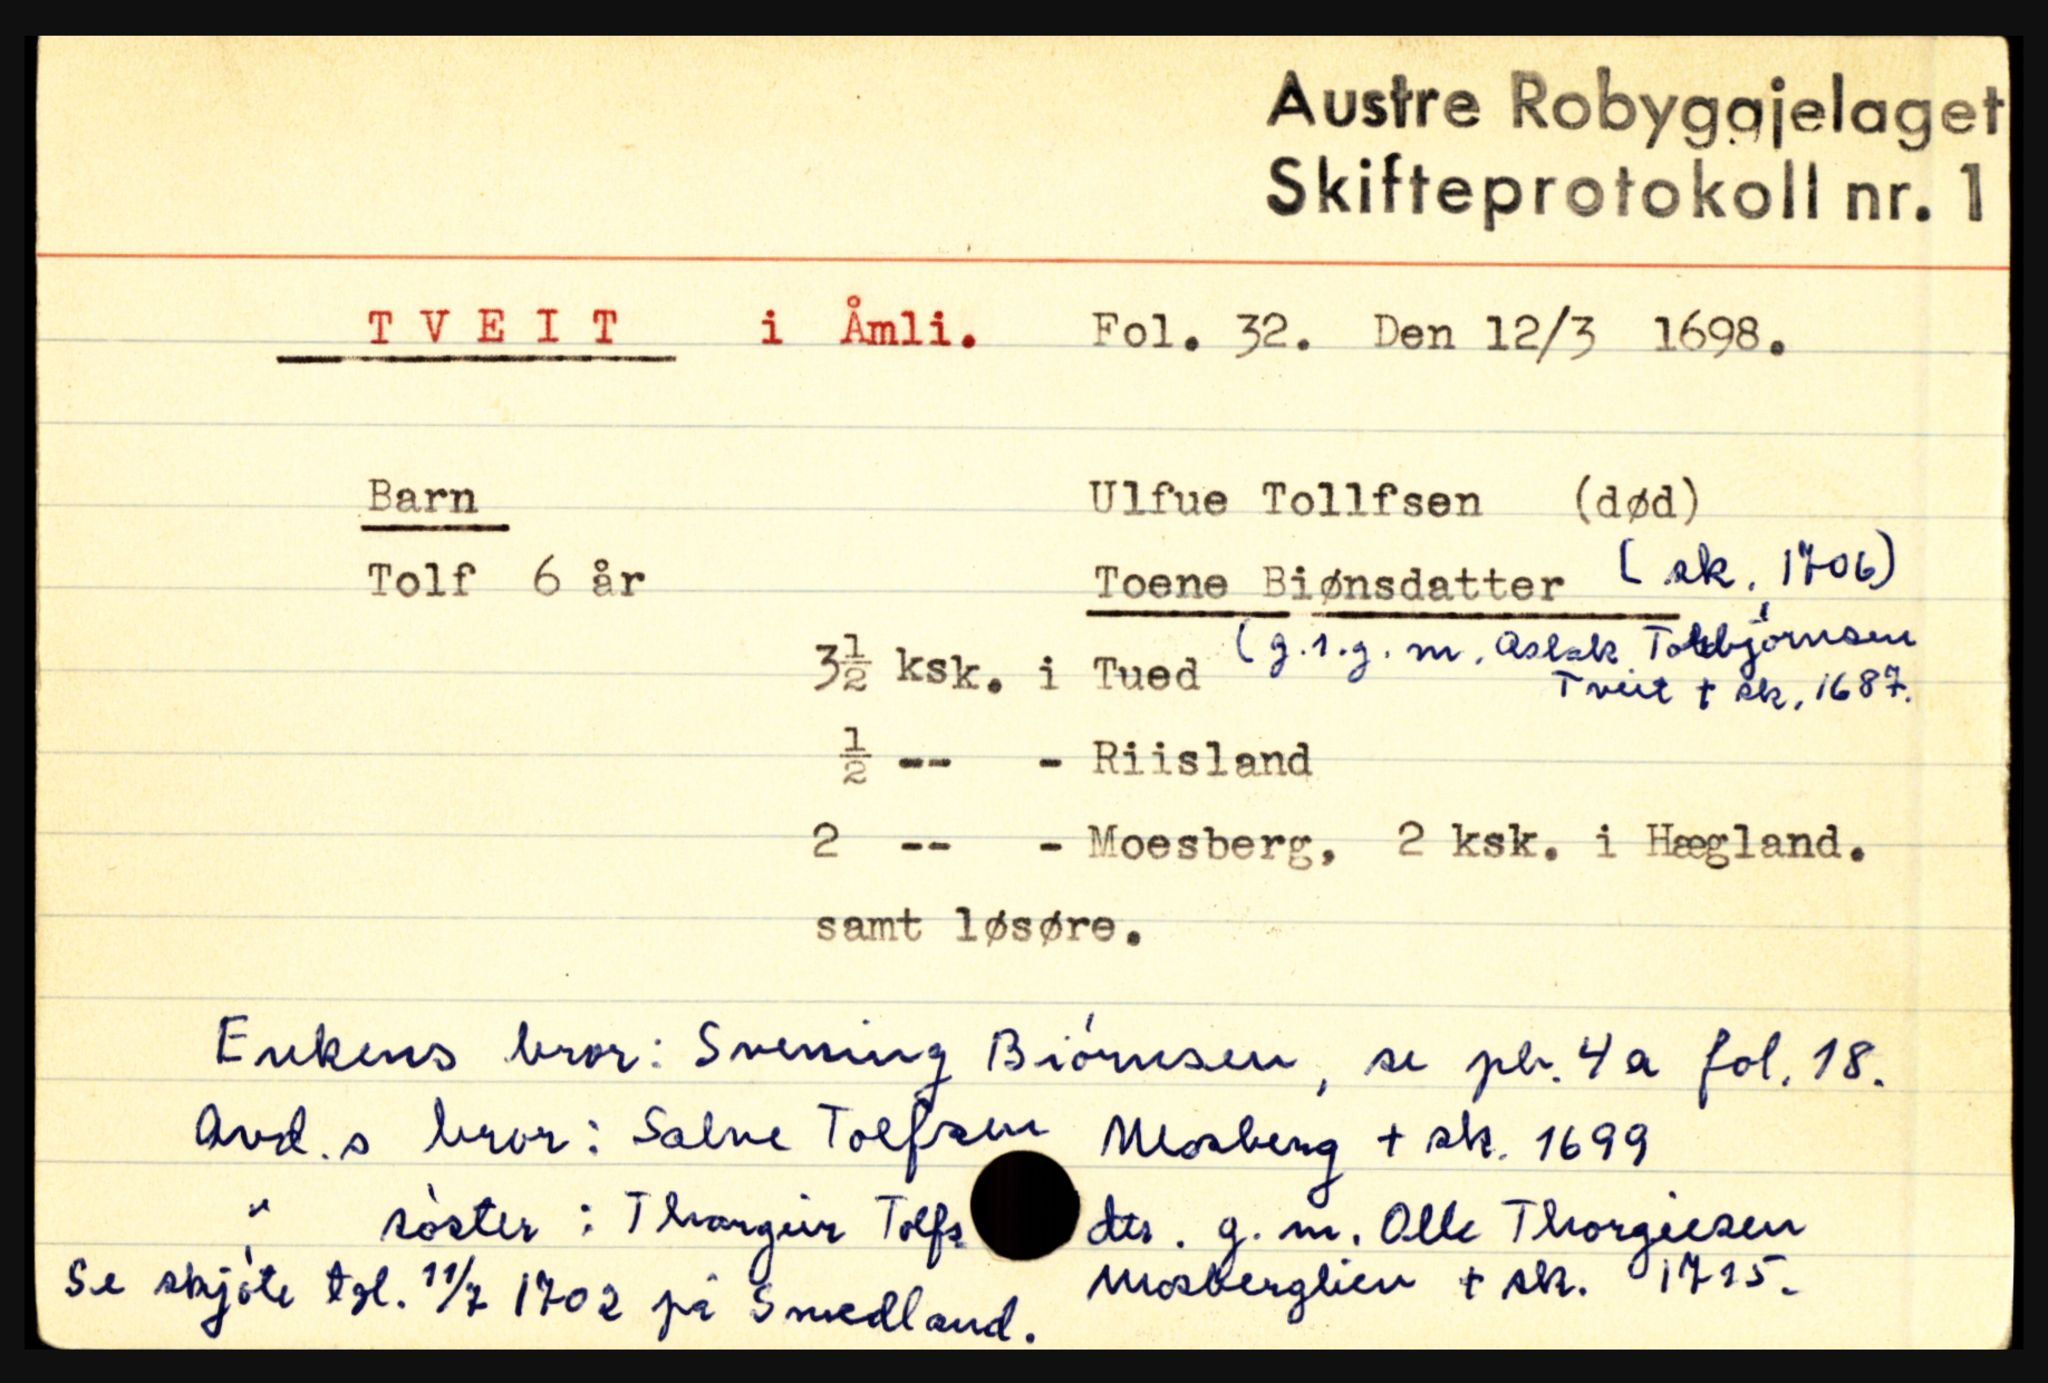 Austre Robyggjelaget
Skifteprotokoll nr. 1
TVEIT i Åmli. Fol. 32. Den 12/3 1698.
Barn Ulfue Tollfsen (død)
Tolf 6 år Toene Biønsdatter (sk. 1706)
3½ ksk. i Tued (g.1.g. m. Aslak Tarbjörnsen
Tveit + sk. 1687.
½ -- - Riisland
2 -- - Moesberg, 2 ksk. i Hægland.
samt løsøre.
Enkens bror: Svening Biörnsen, se pk. 4a fol. 18.
Avd.s bror: Salve Tolfsen Mosberg + sk. 1699
" söster: Thorgun Tolfs dtr. g. m. Olle Thorgiesen
Mosberglien + sk. 1715.
Se skjöte tgl. 11/7 1702 på Smedland.